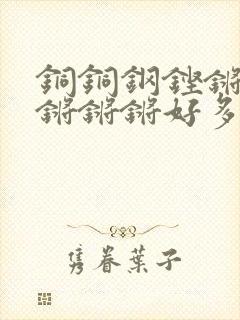 銅銅鋼鏗鏘
鏘鏘鏘好多
隽眷葉子